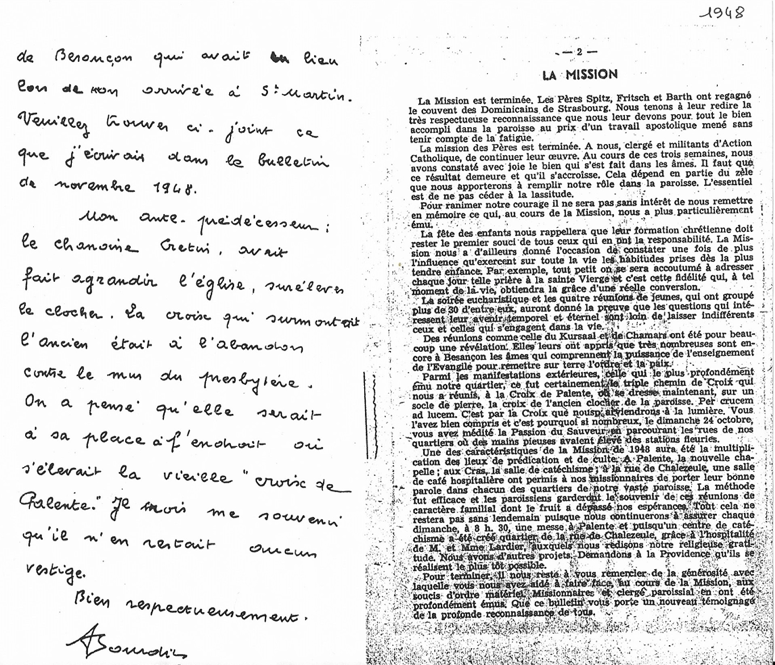 1948
de Besançon qui avait eu lieu
lors de mon arrivée à St Martin.
Veuillez trouver ci-joint ce
que j'écrivais dans le bulletin
de novembre 1948.
Mon anté-prédécesseur,
le chanoine Cretin, avait
fait agrandir l'église, surélever
le clocher. La croix qui surmontait
l'ancien était à l'abandon
contre le mur du presbytère.
On a pensé qu'elle serait
à sa place à l'endroit où
s'élevait la vieille "croix de
Palente." Je crois me souvenir
qu'il n'en restait aucun
vestige.
Bien respectueusement.
— 2 —
LA MISSION
La Mission est terminée. Les Pères Spitz, Fritsch et Barth ont regagné
le couvent des Dominicains de Strasbourg. Nous tenons à leur redire la
très respectueuse reconnaissance que nous leur devons pour tout le bien
accompli dans la paroisse au prix d'un travail apostolique mené sans
tenir compte de la fatigue.
La mission des Pères est terminée. A nous, clergé et militants d'Action
Catholique, de continuer leur œuvre. Au cours de ces trois semaines, nous
avons constaté avec joie le bien qui s'est fait dans les âmes. Il faut que
ce résultat demeure et qu'il s'accroîsse. Cela dépend en partie du zèle
que nous apporterons à remplir notre rôle dans la paroisse. L'essentiel
est de ne pas céder à la lassitude.
Pour ranimer notre courage il ne sera pas sans intérêt de nous remettre
en mémoire ce qui, au cours de la Mission, nous a plus particulièrement
ému.
La fête des enfants nous rappellera que leur formation chrétienne doit
rester le premier souci de tous ceux qui en ont la responsabilité. La Mis-
sion nous a d'ailleurs donné l'occasion de constater une fois de plus
l'influence qu'exercent sur toute la vie les habitudes prises dès la plus
tendre enfance. Par exemple, tout petit on se sera accoutumé à adresser
chaque jour telle prière à la sainte Vierge et c'est cette fidélité qui, à tel
moment de la vie, obtiendra la grâce d'une réelle conversion.
La soirée eucharistique et les quatre réunions de jeunes, qui ont groupé
plus de 30 d'entre eux, auront donné la preuve que les questions qui inté-
ressent leur avenir temporel et éternel sont loin de laisser indifférents
ceux et celles qui s'engagent dans la vie.
Des réunions comme celle du Kursaal et de Chamars ont été pour beau-
coup une révélation. Elles leurs ont appris que très nombreuses sont en-
core à Besançon les âmes qui comprennent la puissance de l'enseignement
de l'Evangile pour remettre sur terre l'ordre et la paix.
Parmi les manifestations extérieures, celle qui le plus profondément
ému notre quartier, ce fut certainement le triple chemin de Croix qui
nous a réunis, à la Croix de Palente, où se dresse maintenant, sur un
socle de pierre, la croix de l'ancien clocher de la paroisse. Per crucem
ad lucem. C'est par la Croix que nousp arviendrons à la lumière. Vous
l'avez bien compris et c'est pourquoi si nombreux, le dimanche 24 octobre,
vous avez médité la Passion du Sauveur en parcourant les rues de nos
quartiers où des mains pieuses avaient élevé des stations fleuries.
Une des caractéristiques de la Mission de 1948 aura été la multipli-
cation des lieux de prédication et de culte. A Palente, la nouvelle cha-
pelle ; aux Cras, la salle de catéchisme ; à la rue de Chalezeule, une salle
de café hospitalière ont permis à nos missionnaires de porter leur bonne
parole dans chacun des quartiers de notre vaste paroisse. La méthode
fut efficace et les paroissiens garderont le souvenir de ces réunions de
caractère familial dont le fruit a dépassé nos espérances. Tout cela ne
restera pas sans lendemain puisque nous continuerons à assurer chaque
dimanche, à 8 h. 30, une messe à Palente et puisqu'un centre de caté-
chisme a été créé quartier de la rue de Chalezeule, grâce à l'hospitalité
de M. et Mme Lardier, auxquels nous redisons notre religieuse grati-
tude. Nous avons d'autres projets. Demandons à la Providence qu'ils se
réalisent le plus tôt possible.
Pour terminer, il nous reste à vous remercier de la générosité avec
laquelle vous nous avez aidé à faire face, au cours de la Mission, aux
soucis d'ordre matériel. Missionnaires et clergé paroissial en ont été
profondément émus. Que ce bulletin vous porte un nouveau témoignage
de la profonde reconnaissance de tous.